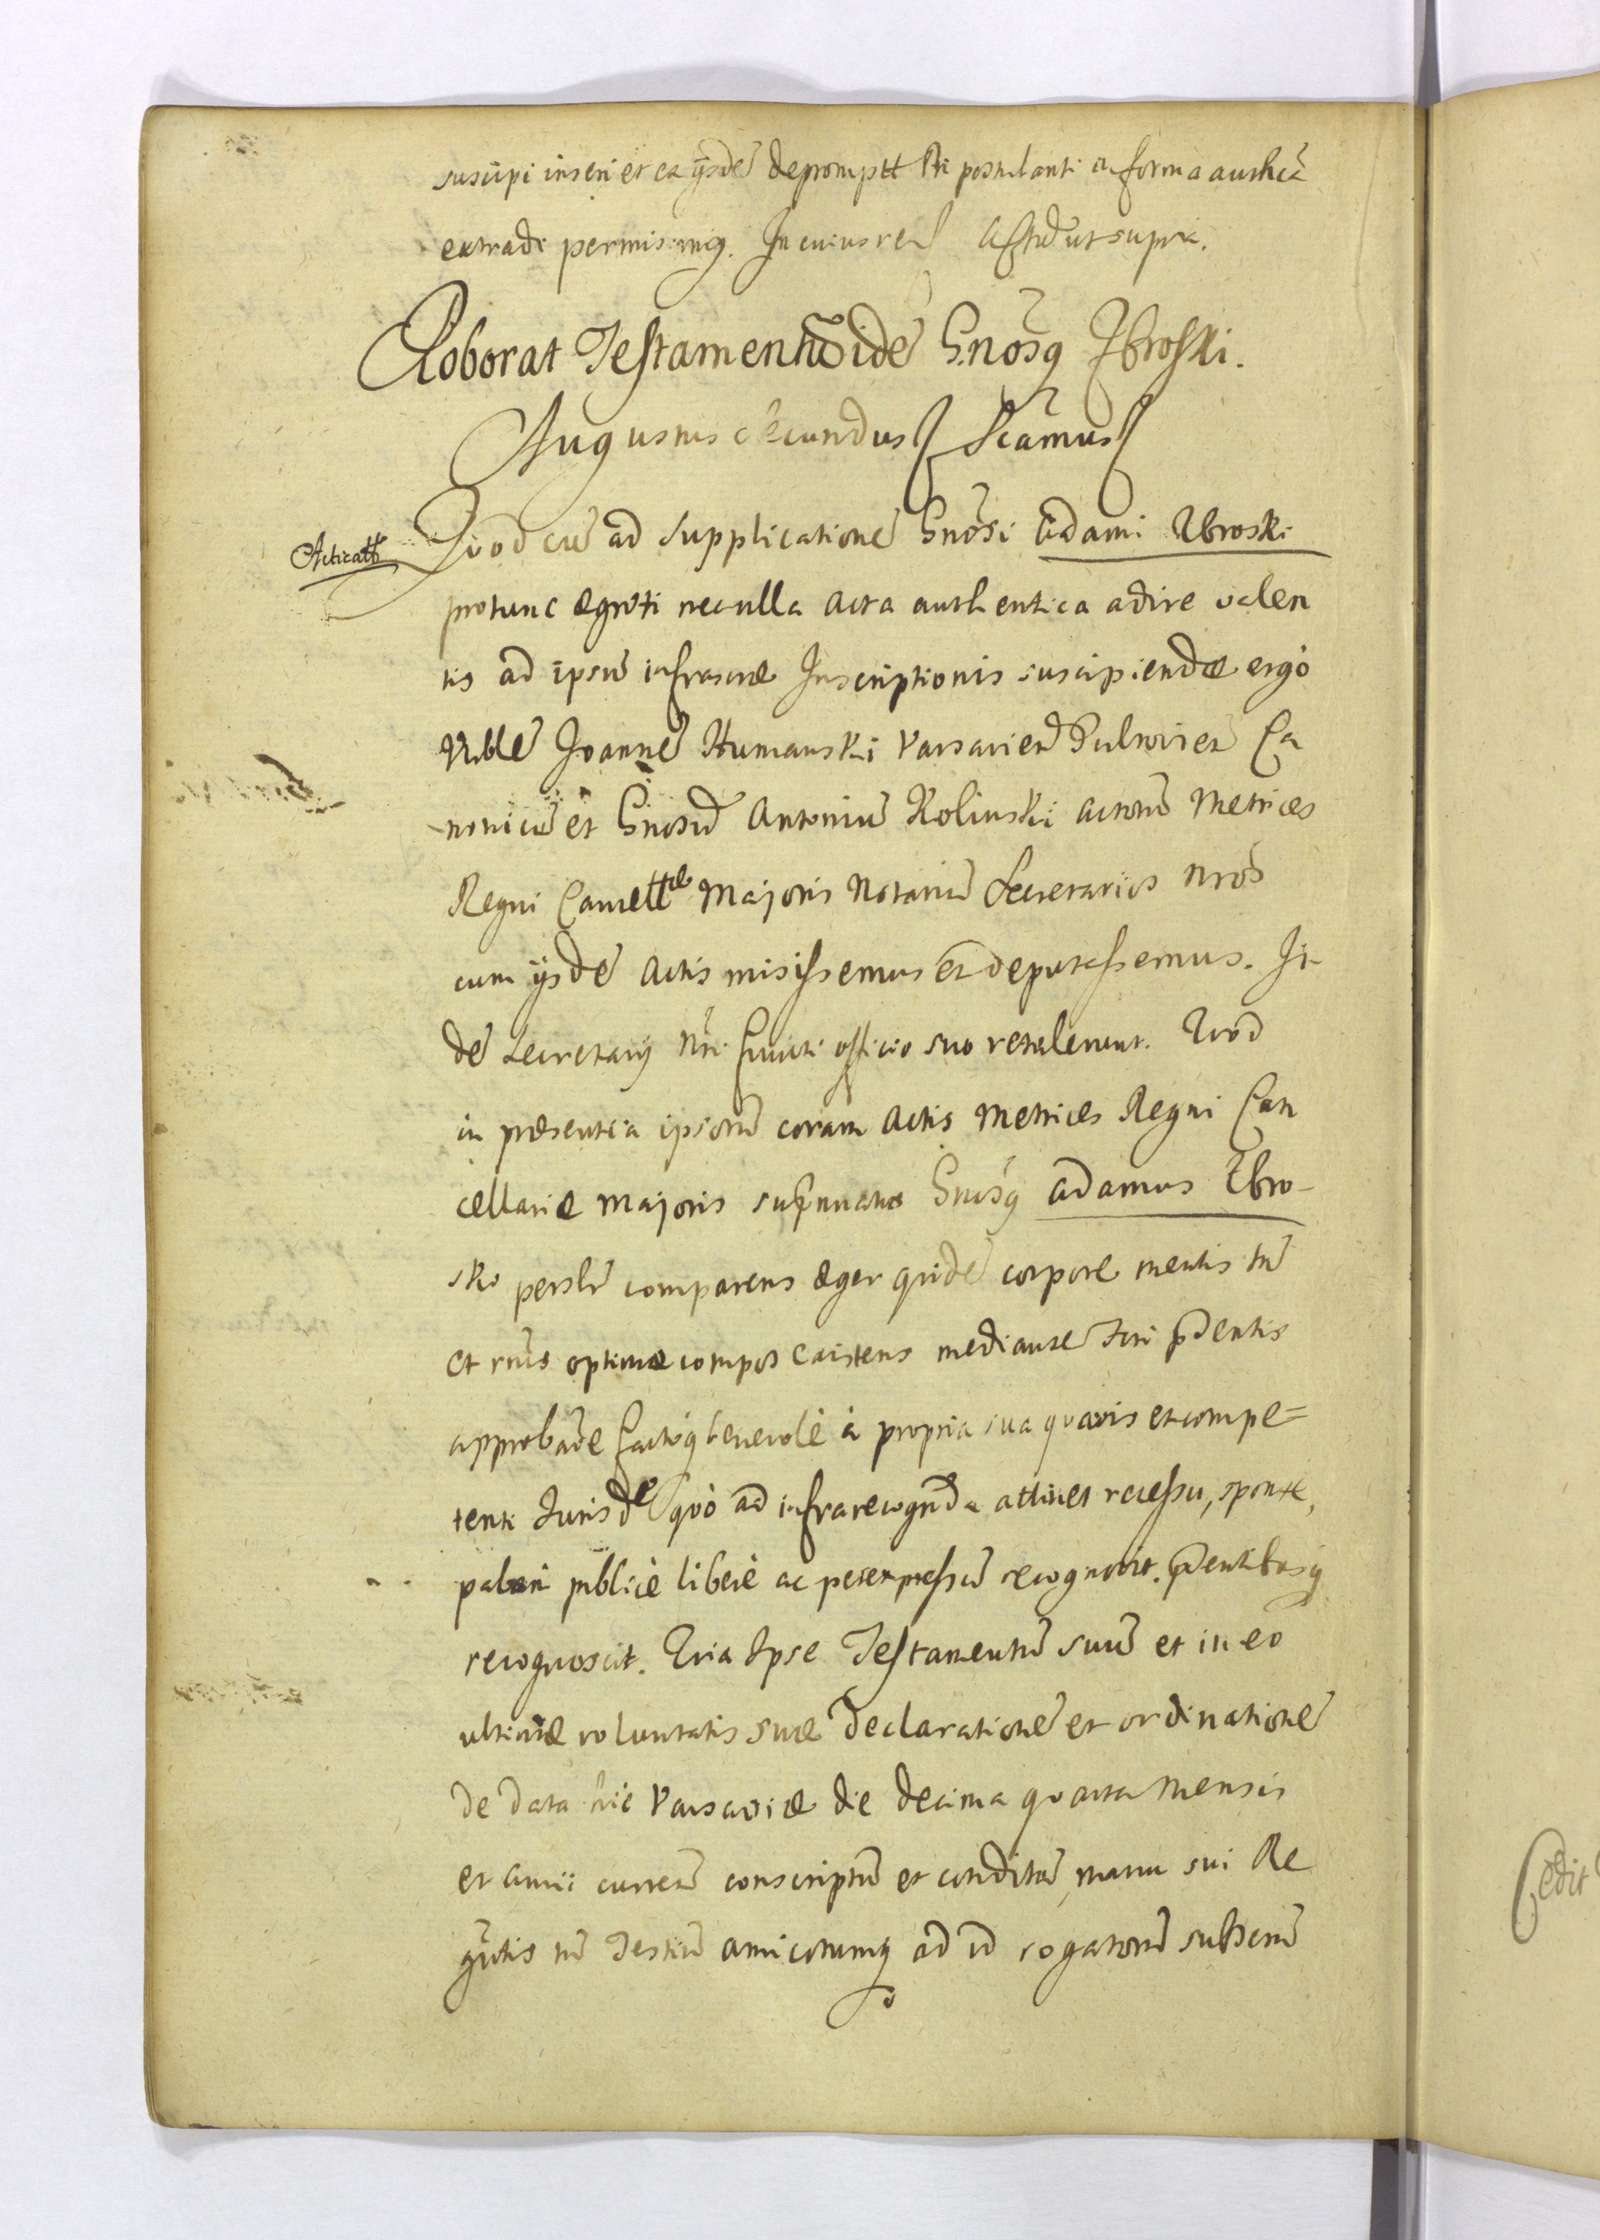 suscipi inseri et ex ijsdē depromptt Pti postulanti in forma authcā
extradi permisimq. In cuius rei Aſtū ut supra.
Roborat Teſtamentū idē Gnosq Zbroſki.
Augustus Secundus Scamus
Acticatt
Quod cū ad supplicationē Gnosi Adami Zbroski
protunc ægroti nec ulla Acta authentica adire valen
tis ad ipsū infrascræ Inscriptionis suscipiendæ ergò
Nblē Joannē Humanski Varsavien Pultovien Ca
nonicū et Gnosū Antoniū Rolinski Actorū Metrices
Regni Cancellttæ Majoris Notariū Secretarios nros
cum ijsdē Actis misiſsemus et deputaſsemus. Ii
dē Secretarij nri functi officio suo retulerunt. Quod
in præsentia ipsorū coram Actis Metrices Regni Can
cellariæ Majoris suprnatus Gnosq Adamus Zbro-
ski persłr comparens æger quidē corpore mentis tn
et rnis optimæ compos existens mediante Juri pdentis
approbane factoq benevolè à propria sua quavis et compe=
tenti Jurisde quò ad infrarecognda attinet receſsu, sponte,
palam publicè liberè ac per expreſsū recognovit. pdentibusq
recognoscit. Quia Ipse Teſtamentū suū et in eo
ultimæ voluntatis suæ declarationē et ordinationē
de data hic Varsaviæ die decima quarta Mensis
et anni curren conscriptū et conditū, manu sui Re
gntis tū Testiū amicorumq ad id rogatorū subscrū
Cedit